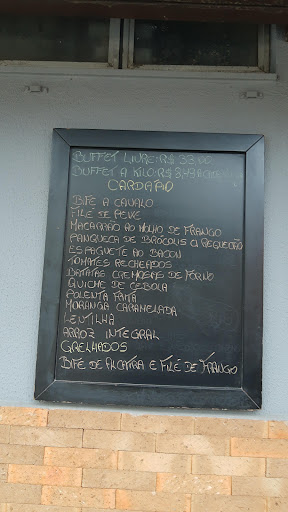 BUFFET LIVRE: R$ 33,00
BUFFET A KILO: R$ 8,49
CARDÁPIO
BIFE A CAVALO
FILÉ DE PEIXE
MACARRÃO AO MOLHO DE FRANGO
PANQUECA DE BRÓCOLIS C/ REQUEIJÃO
ESPAGUETE AO BACON
TOMATES RECHEADOS
BATATAS CREMOSAS DE FORNO
QUICHE DE CEBOLA
POLENTA FRITA
MORANGA CARAMELADA
LENTILHA
ARROZ INTEGRAL
GRELHADOS
BIFE DE ALCATRA E FILÉ DE FRANGO